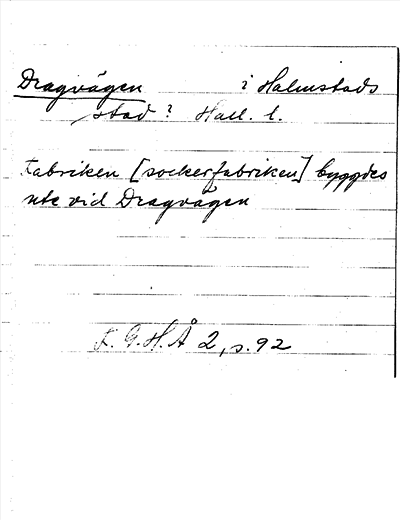 Dragvägen i Halmstads
stad? Hall. l.
Fabriken [sockerfabriken] byggdes
ute vid Dragvägen
F. G. H. Å 2, s. 92